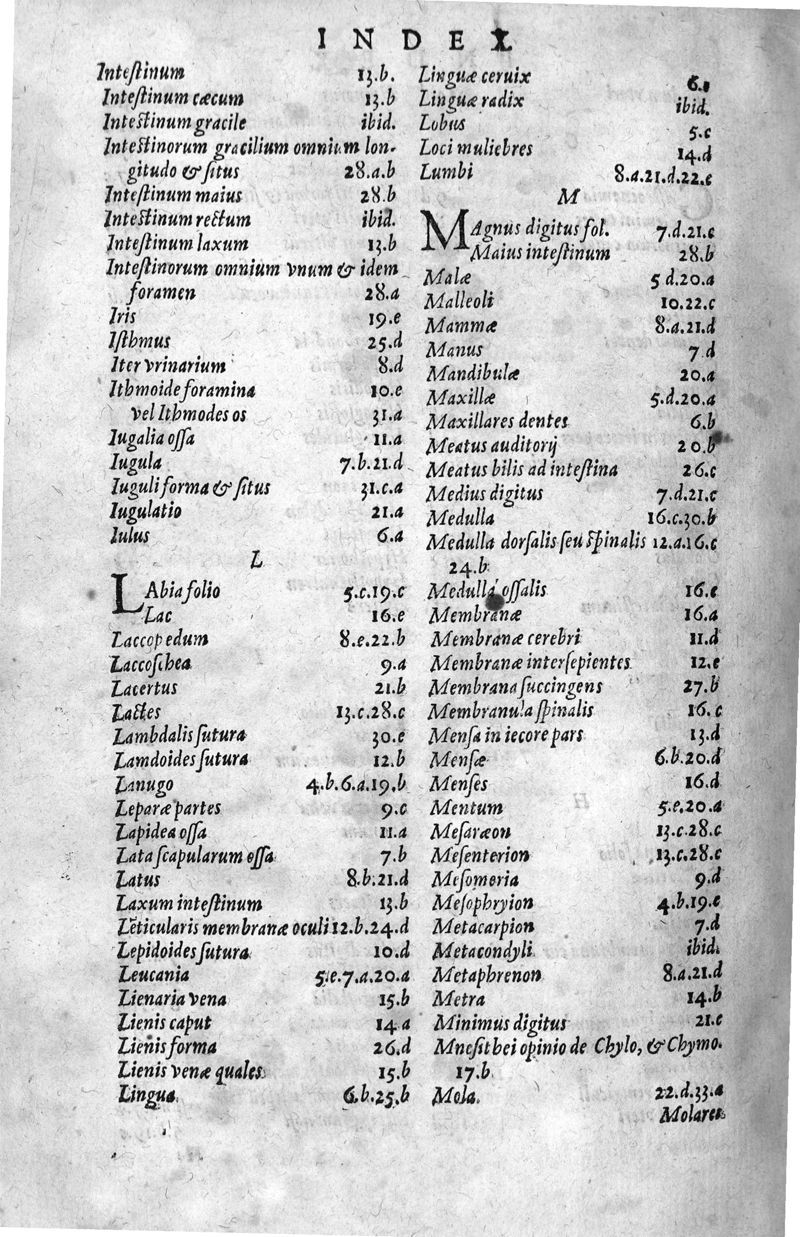 INDEX
Intestinum 13.b.
Intestinum cæcum 13.b
Intestinum gracile ibid.
Intestinorum gracilium omnium lon-
gitudo & situs 28.a.b
Intestinum maius 28.b
Intestinum rectum ibid.
Intestinum laxum 13.b
Intestinorum omnium vnum & idem
foramen 28.a
Iris 19.e
Isthmus 25.d
Iter vrinarium 8.d
Ithmoide foramina 10.e
vel Ithmodes os 31.a
Iugalia ossa 11.a
Iugula 7.b.21.d
Iuguli forma & situs 31.c.a
Iugulatio 21.a
Iulus 6.a
L
LAbia folio 5.c.19.c
Lac 16.e
Laccopedum 8.e.22.b
Laccoschea 9.a
Lacertus 21.b
Lactes 13.c.28.c
Lambdalis sutura 30.e
Lamdoides sutura 12.b
Lanugo 4.b.6.a.19.b
Leparæ partes 9.c
Lapidea ossa 11.a
Lata scapularum ossa 7.b
Latus 8.b.21.d
Laxum intestinum 13.b
Lẽticularis membranæ oculi 12.b.24.d
Lepidoides sutura 10.d
Leucania 5.e.7.a.20.a
Lienaria vena 15.b
Lienis caput 14.a
Lienis forma 26.d
Lienis venæ quales 15.b
Lingua 6.b.25.b
Linguæ ceruix 6.e
Linguæ radix ibid.
Lobus 5.c
Loci muliebres 14.d
Lumbi 8.a.21.d.22.c
M
MAgnus digitus fol. 7.d.21.c
Maius intestinum 28.b
Malæ 5 d.20.a
Malleoli 10.22.c
Mammæ 8.a.21.d
Manus 7.d
Mandibulæ 20.a
Maxillæ 5.d.20.a
Maxillares dentes 6.b
Meatus auditorij 20.b
Meatus bilis ad intestina 26.c
Medius digitus 7.d.21.c
Medulla 16.c.30.b
Medulla dorsalis seu spinalis 12.a.16.c
24.b
Medulla ossalis 16.e
Membranæ 16.a
Membranæ cerebri 11.d
Membranæ intersepientes 12.e
Membrana succingens 27.b
Membranula spinalis 16.c
Mensa in iecore pars 13.d
Mensæ 6.b.20.d
Menses 16.d
Mentum 5.e.20.a
Mesaræon 13.c.28.c
Mesenterion 13.c.28.c
Mesomeria 9.d
Mesophryion 4.b.19.e
Metacarpion 7.d
Metacondyli ibid.
Metaphrenon 8.a.21.d
Metra 14.b
Minimus digitus 21.c
Mnesithei opinio de Chylo, & Chymo.
17.b
Mola 22.d.33.a
Molares